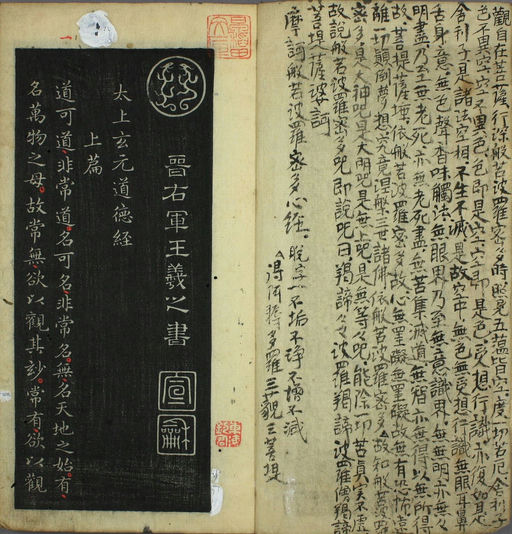 觀自在菩薩行深般若波羅密多時照見五蘊皆空度一切苦厄舍利子
色不異空空不異色色即是空空即是色受想行識亦復如是
舍利子是諸法空相不生不滅是故空中無色無受想行識無眼耳鼻
舌身意無色聲香味觸法無眼界乃至無意識界無無明亦無無
明盡乃至無老死亦無老死盡無苦集滅道無智亦無得以無所得
故菩提薩埵依般若波羅密多故心無罣礙無罣礙故無有恐怖遠
離一切顛倒夢想究竟涅槃三世諸佛依般若波羅密多故
密多是大神咒是大明咒是無上咒是無等等咒能除一切苦真實不虛
故說般若波羅密多咒即說咒曰揭諦々々波羅揭諦波羅僧揭諦
菩提薩婆訶
摩訶般若波羅密多心經 脫字一不垢不淨不增不減
得阿耨多羅三藐三菩提
晉右軍王羲之書
太上玄元道德經
上篇
道可道非常道名可名非常名無名天地之始有
名萬物之母故常無欲以觀其玅常有欲以觀